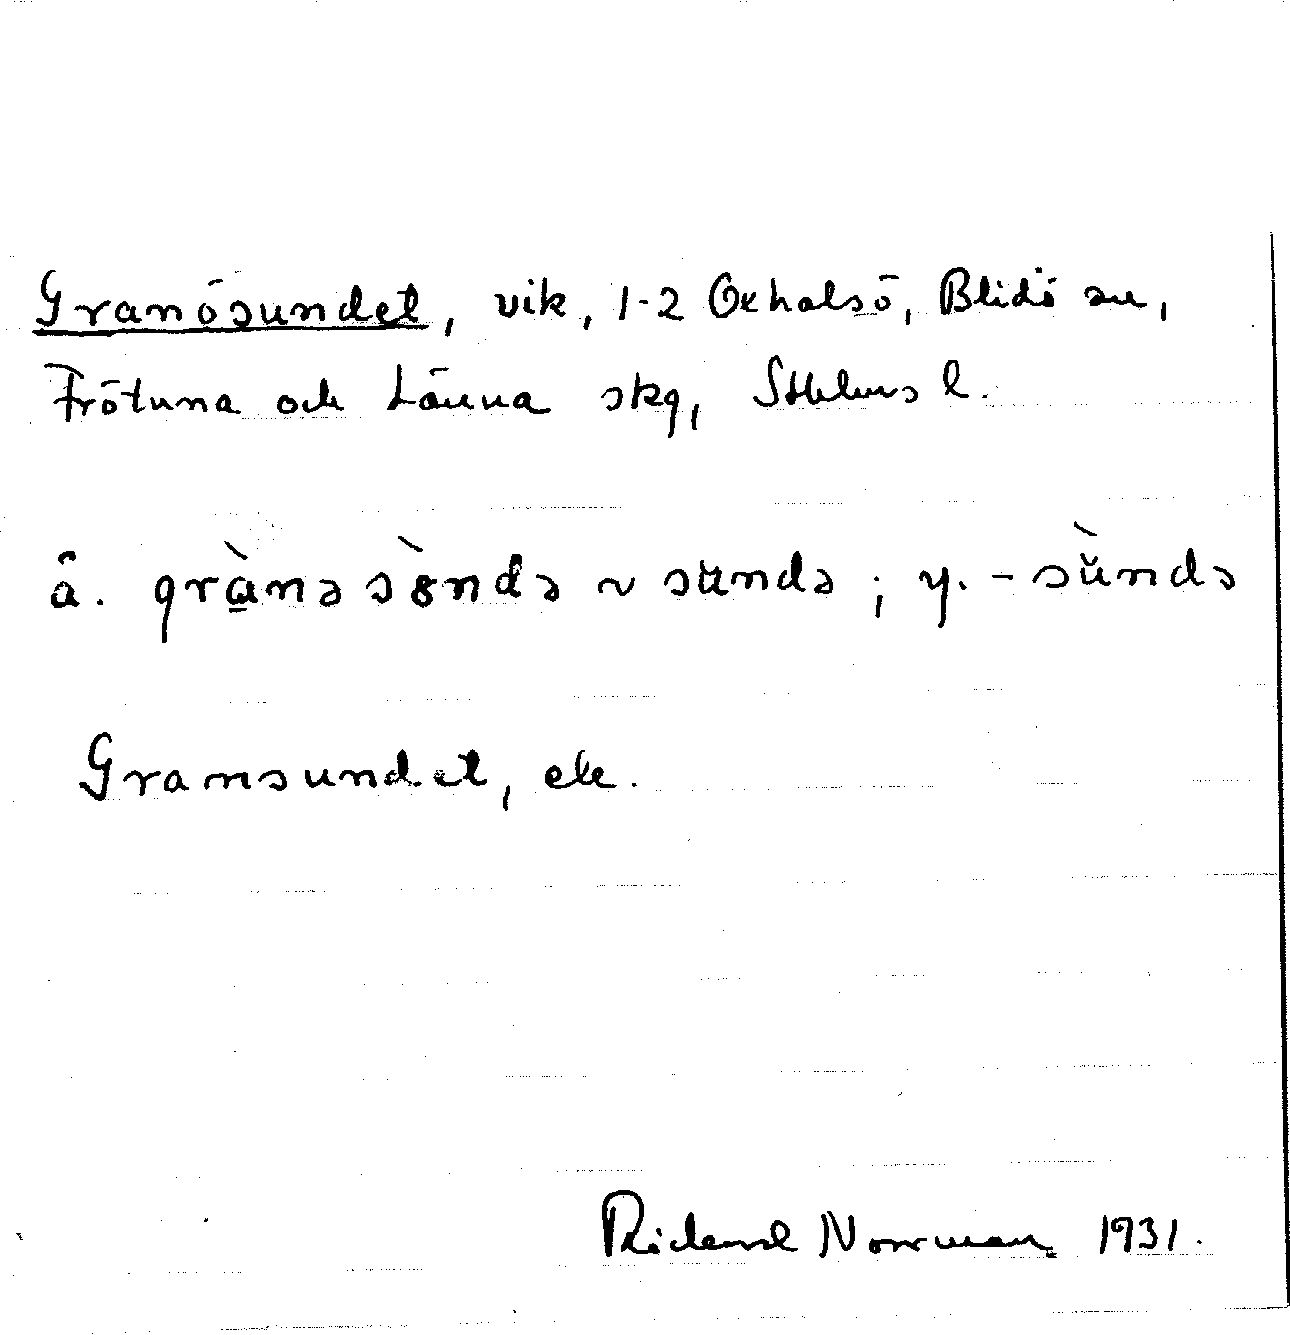 Granösundet, vik, 1-2 Oxhalsö, Blidö sn,
Frötuna och Länna skg, Sthlms l.
ä. grànə sòndə ~ sundə ; y. - sùndə
Gransundet, ek.
Rickard Norrman 1931.